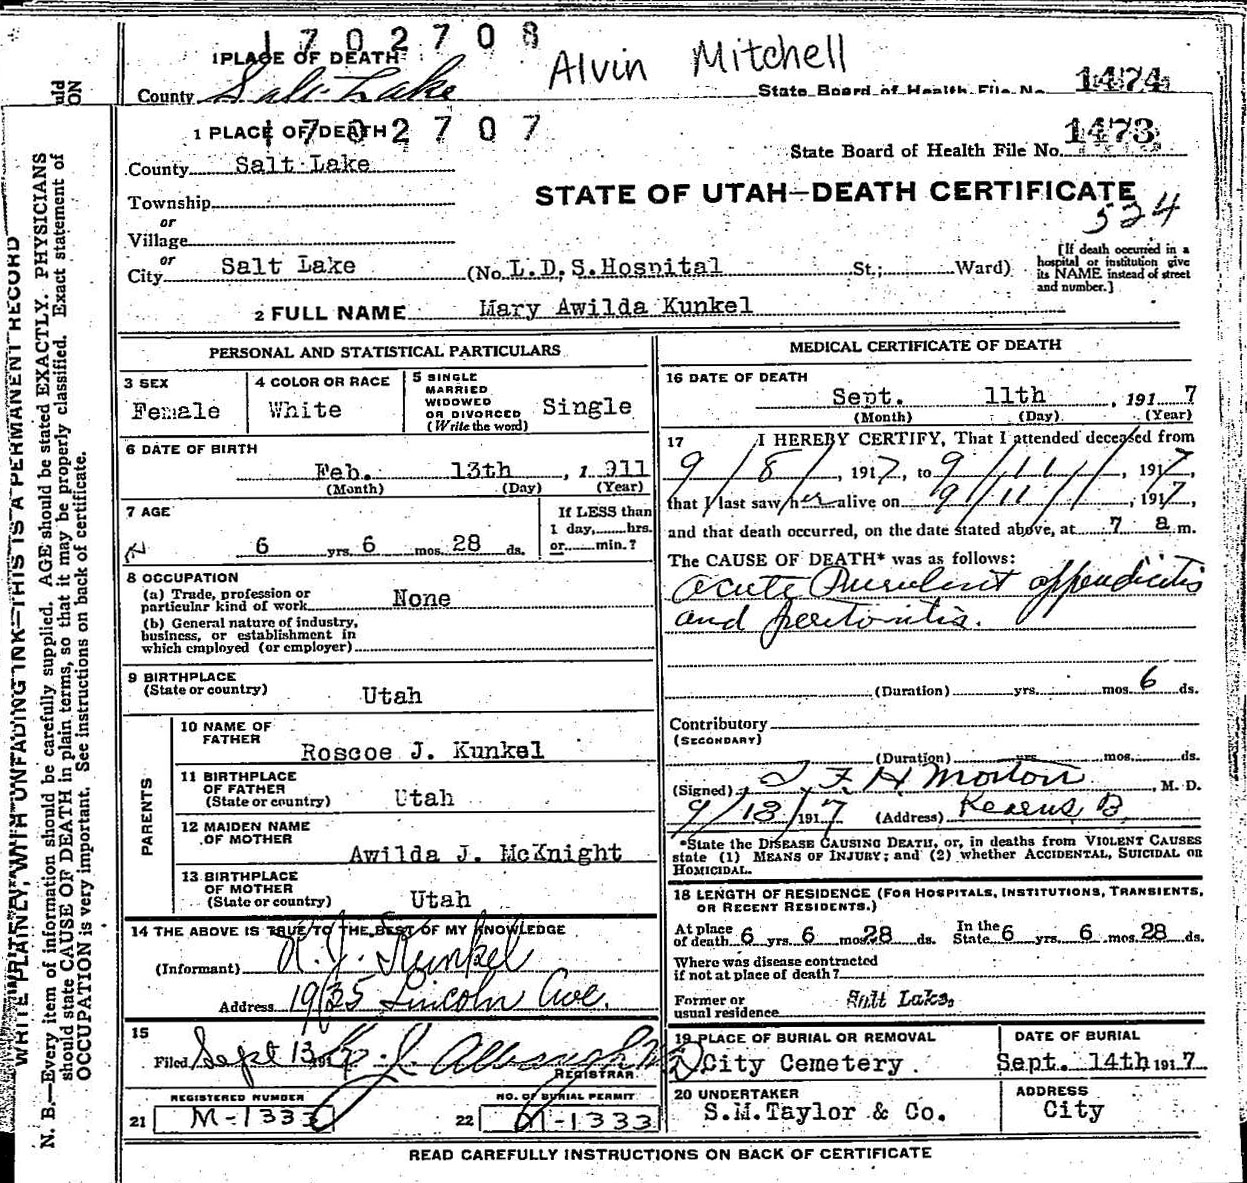 1702708
1 PLACE OF DEATH
Alvin Mitchell
County Salt Lake
State Board of Health File No. 1474
uld
ON
1702707
1 PLACE OF DEATH
State Board of Health File No. 1473
County Salt Lake
STATE OF UTAH—DEATH CERTIFICATE
534
Township
or
Village
or
City Salt Lake (No. L.D.S.Hospital St.; Ward)
[If death occurred in a
hospital or institution give
its NAME instead of street
and number.]
2 FULL NAME Mary Awilda Kunkel
PERSONAL AND STATISTICAL PARTICULARS
3 SEX
Female
4 COLOR OR RACE
White
5 SINGLE
MARRIED
WIDOWED
OR DIVORCED
(Write the word)
Single
6 DATE OF BIRTH
Feb. 13th, 1 911
(Month) (Day) (Year)
7 AGE
6 yrs. 6 mos. 28 ds.
If LESS than
1 day, hrs.
or min.?
8 OCCUPATION
(a) Trade, profession or
particular kind of work None
(b) General nature of industry,
business, or establishment in
which employed (or employer)
9 BIRTHPLACE
(State or country) Utah
PARENTS
10 NAME OF
FATHER
Roscoe J. Kunkel
11 BIRTHPLACE
OF FATHER
(State or country) Utah
12 MAIDEN NAME
OF MOTHER
Awilda J. McKnight
13 BIRTHPLACE
OF MOTHER
(State or country) Utah
14 THE ABOVE IS TRUE TO THE BEST OF MY KNOWLEDGE
(Informant) R. J. Kunkel
Address 1935 Lincoln Ave.
15
Filed Sept 13 191
REGISTRAR
REGISTERED NUMBER
21 M-1333
NO. OF BURIAL PERMIT
22 M-1333
MEDICAL CERTIFICATE OF DEATH
16 DATE OF DEATH
Sept. 11th, 191 7
(Month) (Day) (Year)
17 I HEREBY CERTIFY, That I attended deceased from
9/8/, 1917, to 9/11/, 1917,
that I last saw her alive on 9/11/, 1917,
and that death occurred, on the date stated above, at 7 a m.
The CAUSE OF DEATH* was as follows:
acute Purulent appendicitis
and peritonitis.
(Duration) yrs. mos. 6 ds.
Contributory
(SECONDARY)
(Duration) yrs. mos. ds.
(Signed) F. H. Morton, M. D.
9/13/1917 (Address) Kearns B.
*State the DISEASE CAUSING DEATH, or, in deaths from VIOLENT CAUSES
state (1) MEANS OF INJURY; and (2) whether ACCIDENTAL, SUICIDAL OR
HOMICIDAL.
18 LENGTH OF RESIDENCE (FOR HOSPITALS, INSTITUTIONS, TRANSIENTS,
OR RECENT RESIDENTS.)
At place
of death 6 yrs. 6 mos. 28 ds. In the
State 6 yrs. 6 mos. 28 ds.
Where was disease contracted
if not at place of death?
Former or
usual residence Salt Lake,
19 PLACE OF BURIAL OR REMOVAL
City Cemetery.
DATE OF BURIAL
Sept. 14th 1917.
20 UNDERTAKER
S.M.Taylor & Co.
ADDRESS
City
READ CAREFULLY INSTRUCTIONS ON BACK OF CERTIFICATE
WRITE PLAINLY, WITH UNFADING INK—THIS IS A PERMANENT RECORD
N. B.—Every item of information should be carefully supplied. AGE should be stated EXACTLY. PHYSICIANS
should state CAUSE OF DEATH in plain terms, so that it may be properly classified. Exact statement of
OCCUPATION is very important. See instructions on back of certificate.